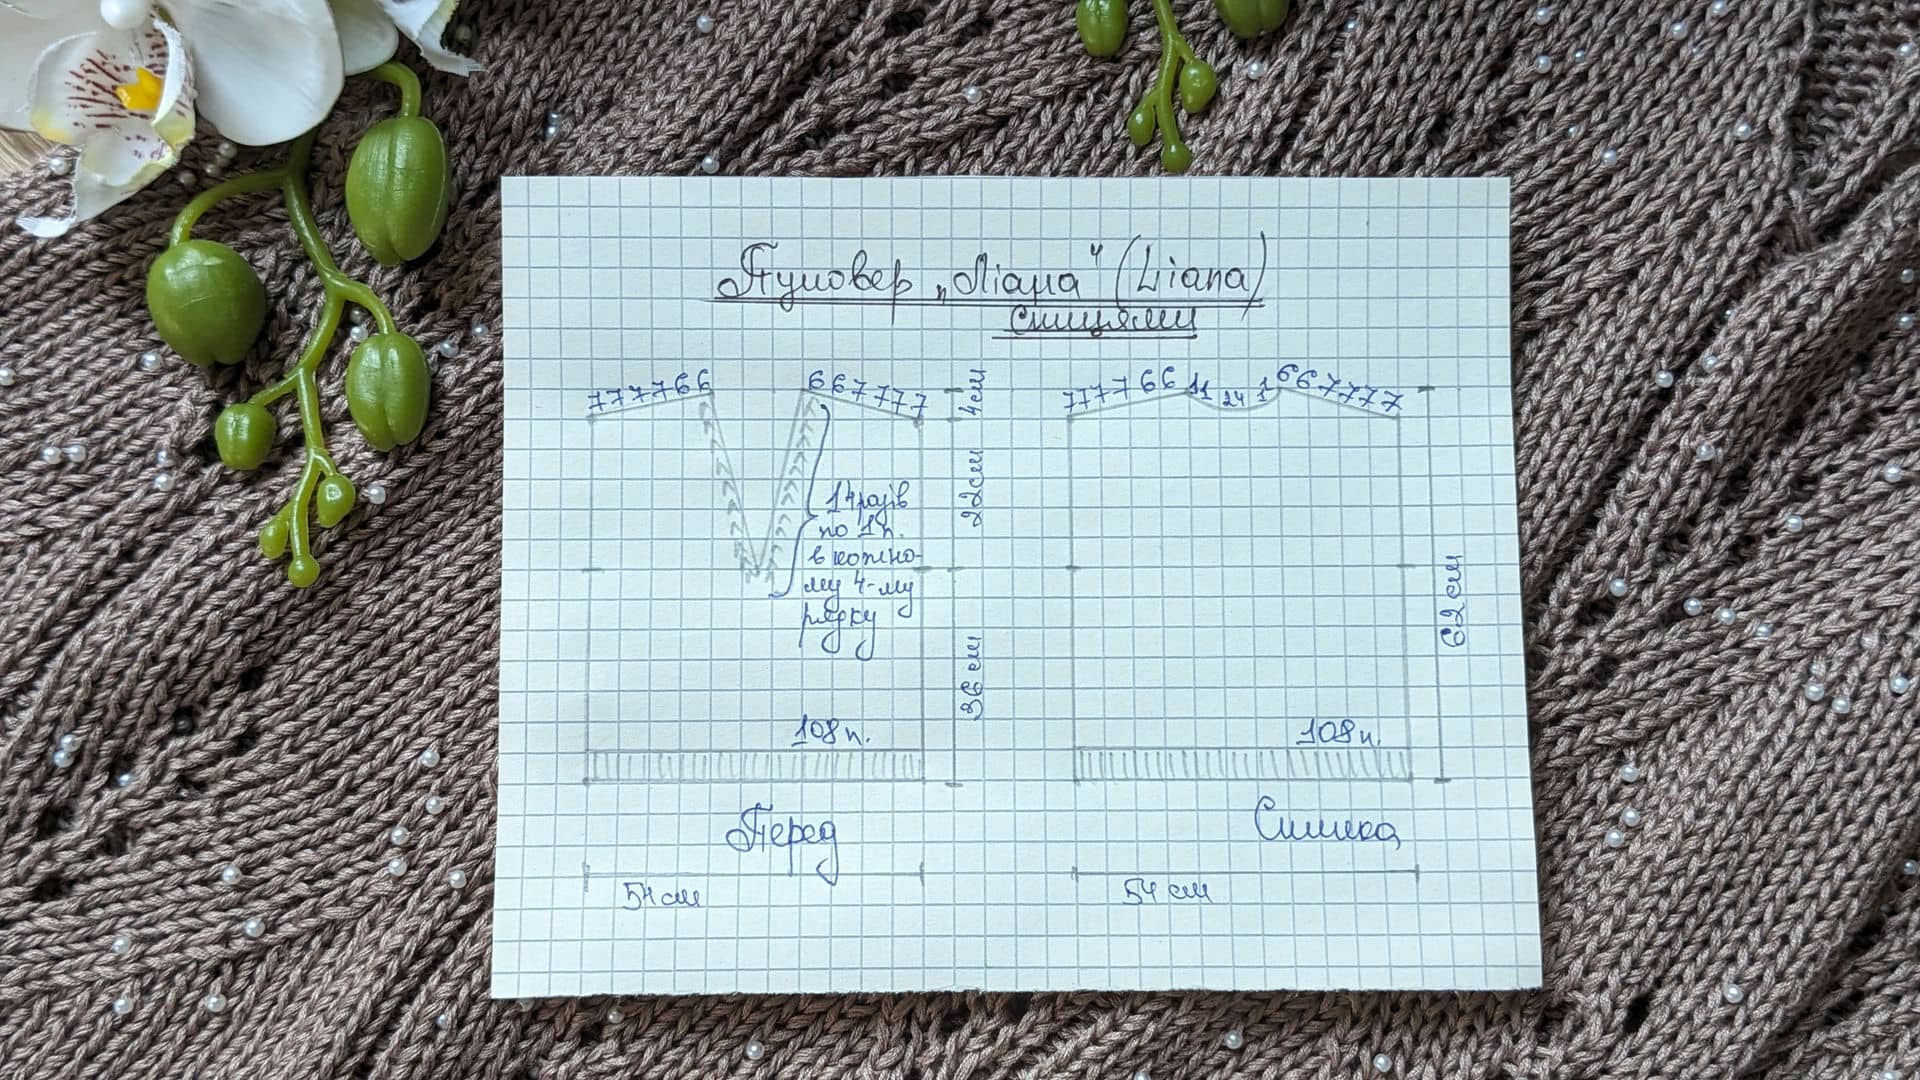 Пуловер „Ліана" (Liana)
спицями
777766
667777
4см
22см
36см
14 разів
по 1п.
в кожно-
му 4-му
рядку
108п.
Перед
54см
777766 11 24 1 667777
62см
108п.
Спинка
54см